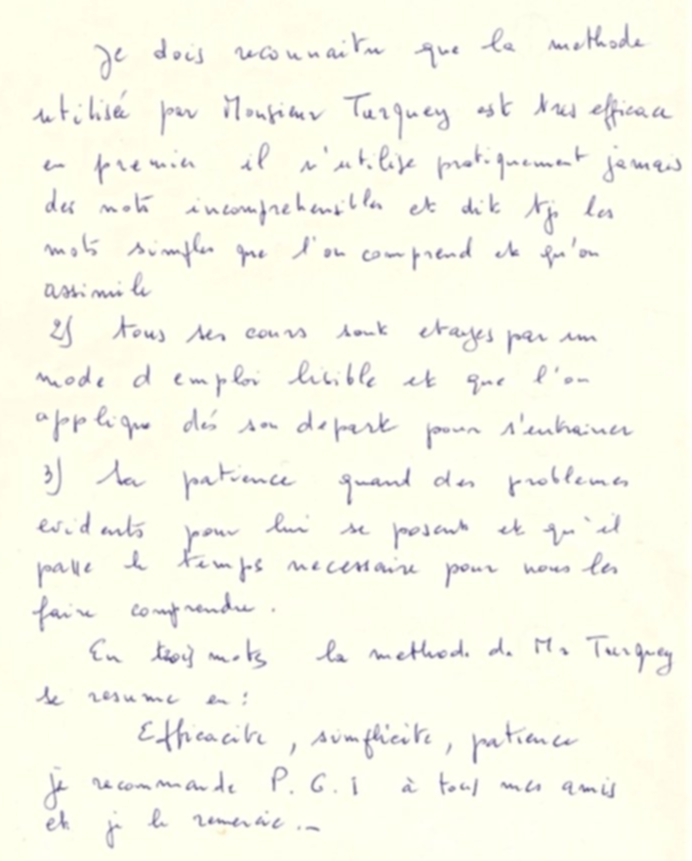 je dois reconnaitre que la methode
utilisée par Monsieur Turquey est tres efficace
en premier il n'utilise pratiquement jamais
des mots incomprehensibles et dit tjs les
mots simples que l'on comprend et qu'on
assimile
2) tous ses cours sont etayes par un
mode d emploi lisible et que l'on
applique dés son depart pour s'entrainer
3) Sa patience quand des problemes
evidents pour lui se posent et qu'il
passe le temps necessaire pour nous les
faire comprendre.
En trois mots la methode de Mr Turquey
se resume en :
Efficacite, simplicite, patience
je recommande P.G.I à tous mes amis
et je le remercie.-